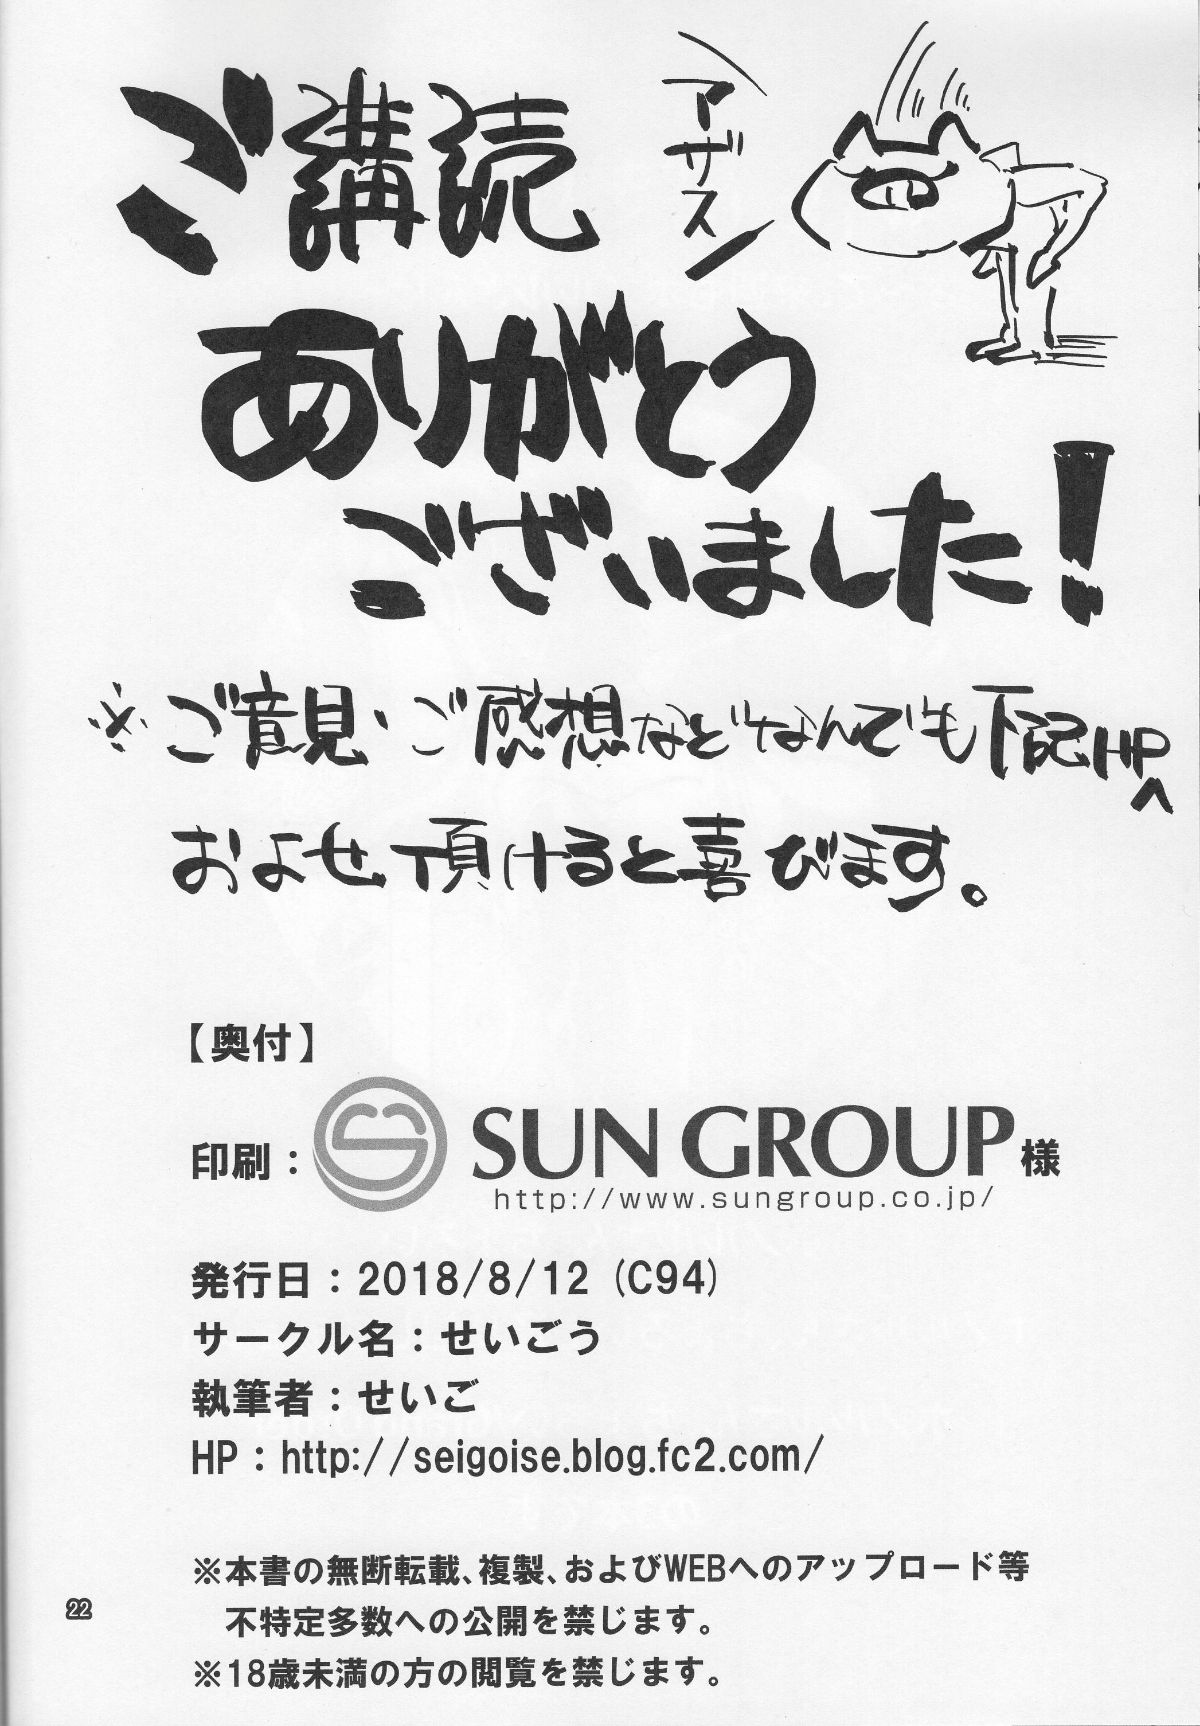 ご講読
アザス
ありがとう
ございました!
※ご意見・ご感想などなんでも下記HPへ
およせ頂けると喜びます。
【奥付】
印刷：SUN GROUP様
http://www.sungroup.co.jp/
発行日：2018/8/12 (C94)
サークル名：せいごう
執筆者：せいご
HP：http://seigoise.blog.fc2.com/
※本書の無断転載､複製､およびWEBへのアップロード等
不特定多数への公開を禁じます。
※18歳未満の方の閲覧を禁じます。
22